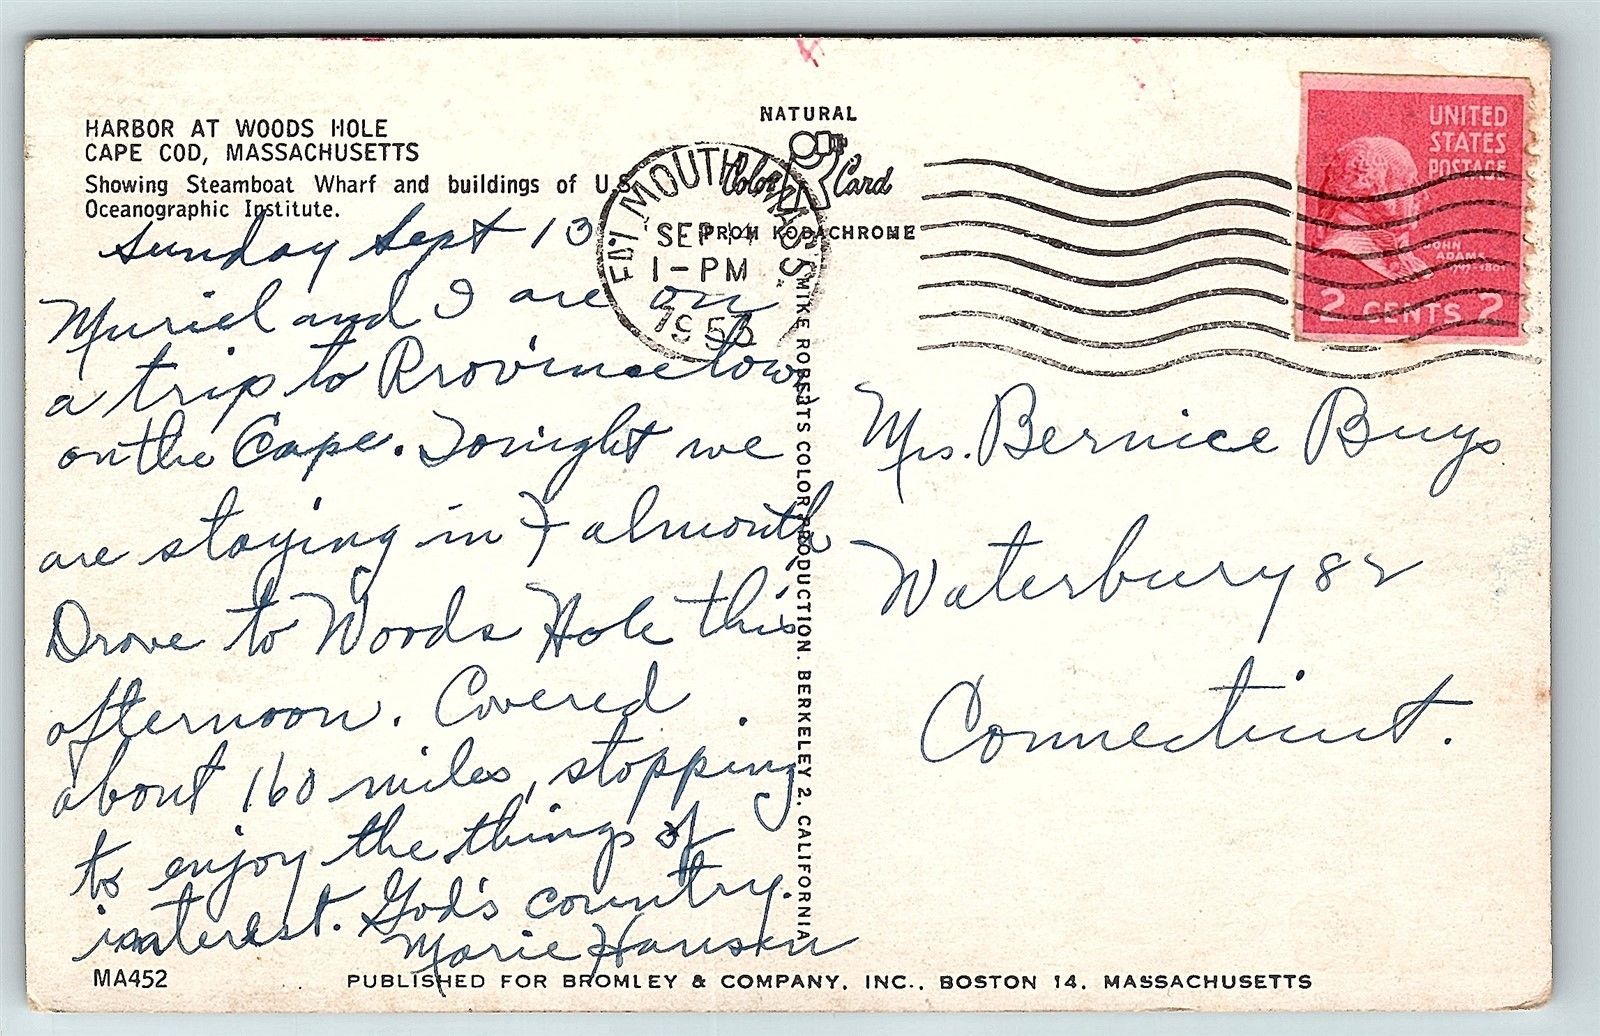 HARBOR AT WOODS HOLE
CAPE COD, MASSACHUSETTS
Showing Steamboat Wharf and buildings of U.S.
Oceanographic Institute.
Sunday Sept 13
Muriel and I are on
a trip to Provincetown
on the Cape. Tonight we
are staying in Falmouth
Drove to Woods Hole this
afternoon. Covered
about 160 miles, stopping
to enjoy the things of
interest. God's country.
Marie Hansen
MA452
PUBLISHED FOR BROMLEY & COMPANY, INC., BOSTON 14, MASSACHUSETTS
NATURAL
Color Card
FROM KODACHROME
MIKE ROBERTS COLOR PRODUCTION. BERKELEY 2. CALIFORNIA
FALMOUTH MASS.
SEP 14
1-PM
1953
UNITED
STATES
POSTAGE
JOHN
ADAMS
1797-1801
2 CENTS 2
Mrs. Bernice Buys
Waterbury 82
Connecticut.